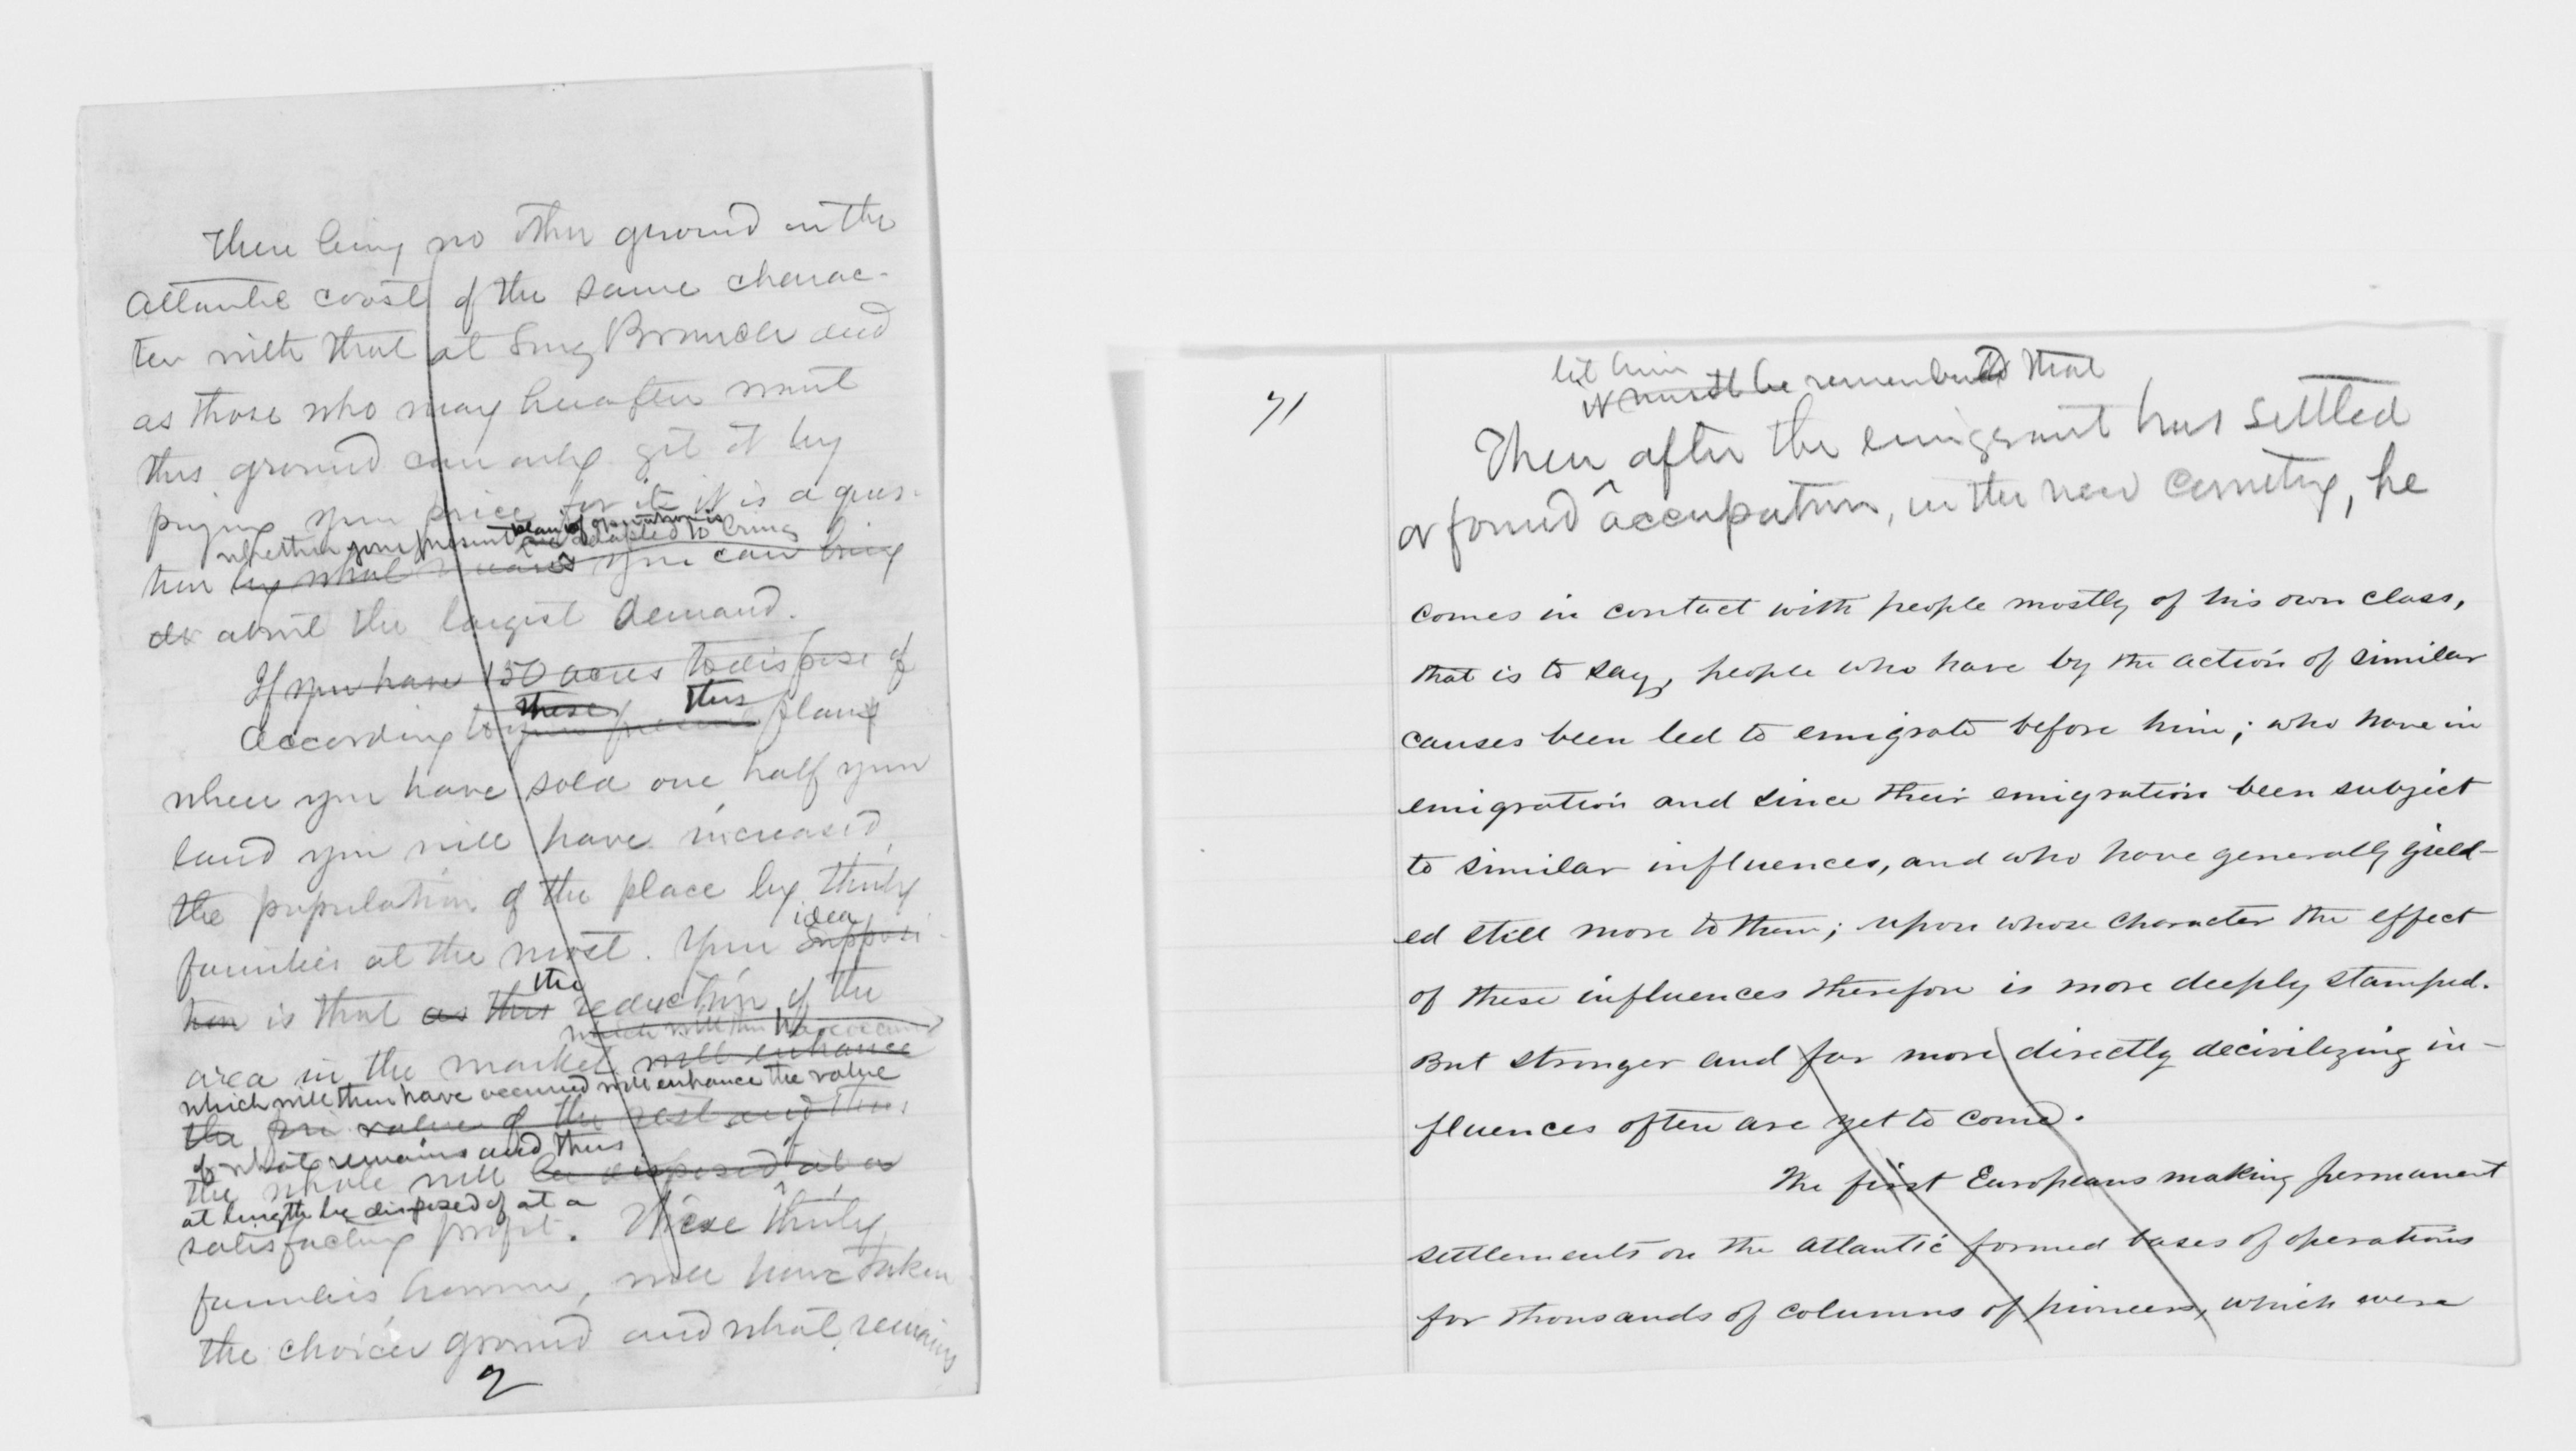 There being no other ground on the
Atlantic coast of the same charac-
ter with that at Long Branch and
as those who may hereafter want
this ground can only get it by
paying your price for it, it is a ques-
whether your present plan of operation is
adapted to bring
tion by what means you can bring
about the largest demand.
If you have 150 acres to dispose of
these this
According to your present plans
when you have sold one half your
land you will have increased
the population of the place by thirty
idea
families at the most. Your supposi-
the
tion is that as this reduction of the
which will then have occurred
area in the market will enhance
which will then have occurred will enhance the value
the value of the rest and thus
of what remains and thus
the whole will be disposed at a
at length be disposed of at a
satisfactory profit. These thirty
families however, will have taken
the choicer ground and what remains
2
71
let him
it must be remembered that
Then after the emigrant has settled
or found occupation, in the new country, he
comes in contact with people mostly of his own class,
that is to say, people who have by the action of similar
causes been led to emigrate before him; who have in
emigration and since their emigration been subject
to similar influences, and who have generally yield-
ed still more to them; upon whose character the effect
of these influences therefore is more deeply stamped.
But stronger and far more directly decivilizing in-
fluences often are yet to come.
The first Europeans making permanent
settlements on the Atlantic formed bases of operations
for thousands of columns of pioneers, which were